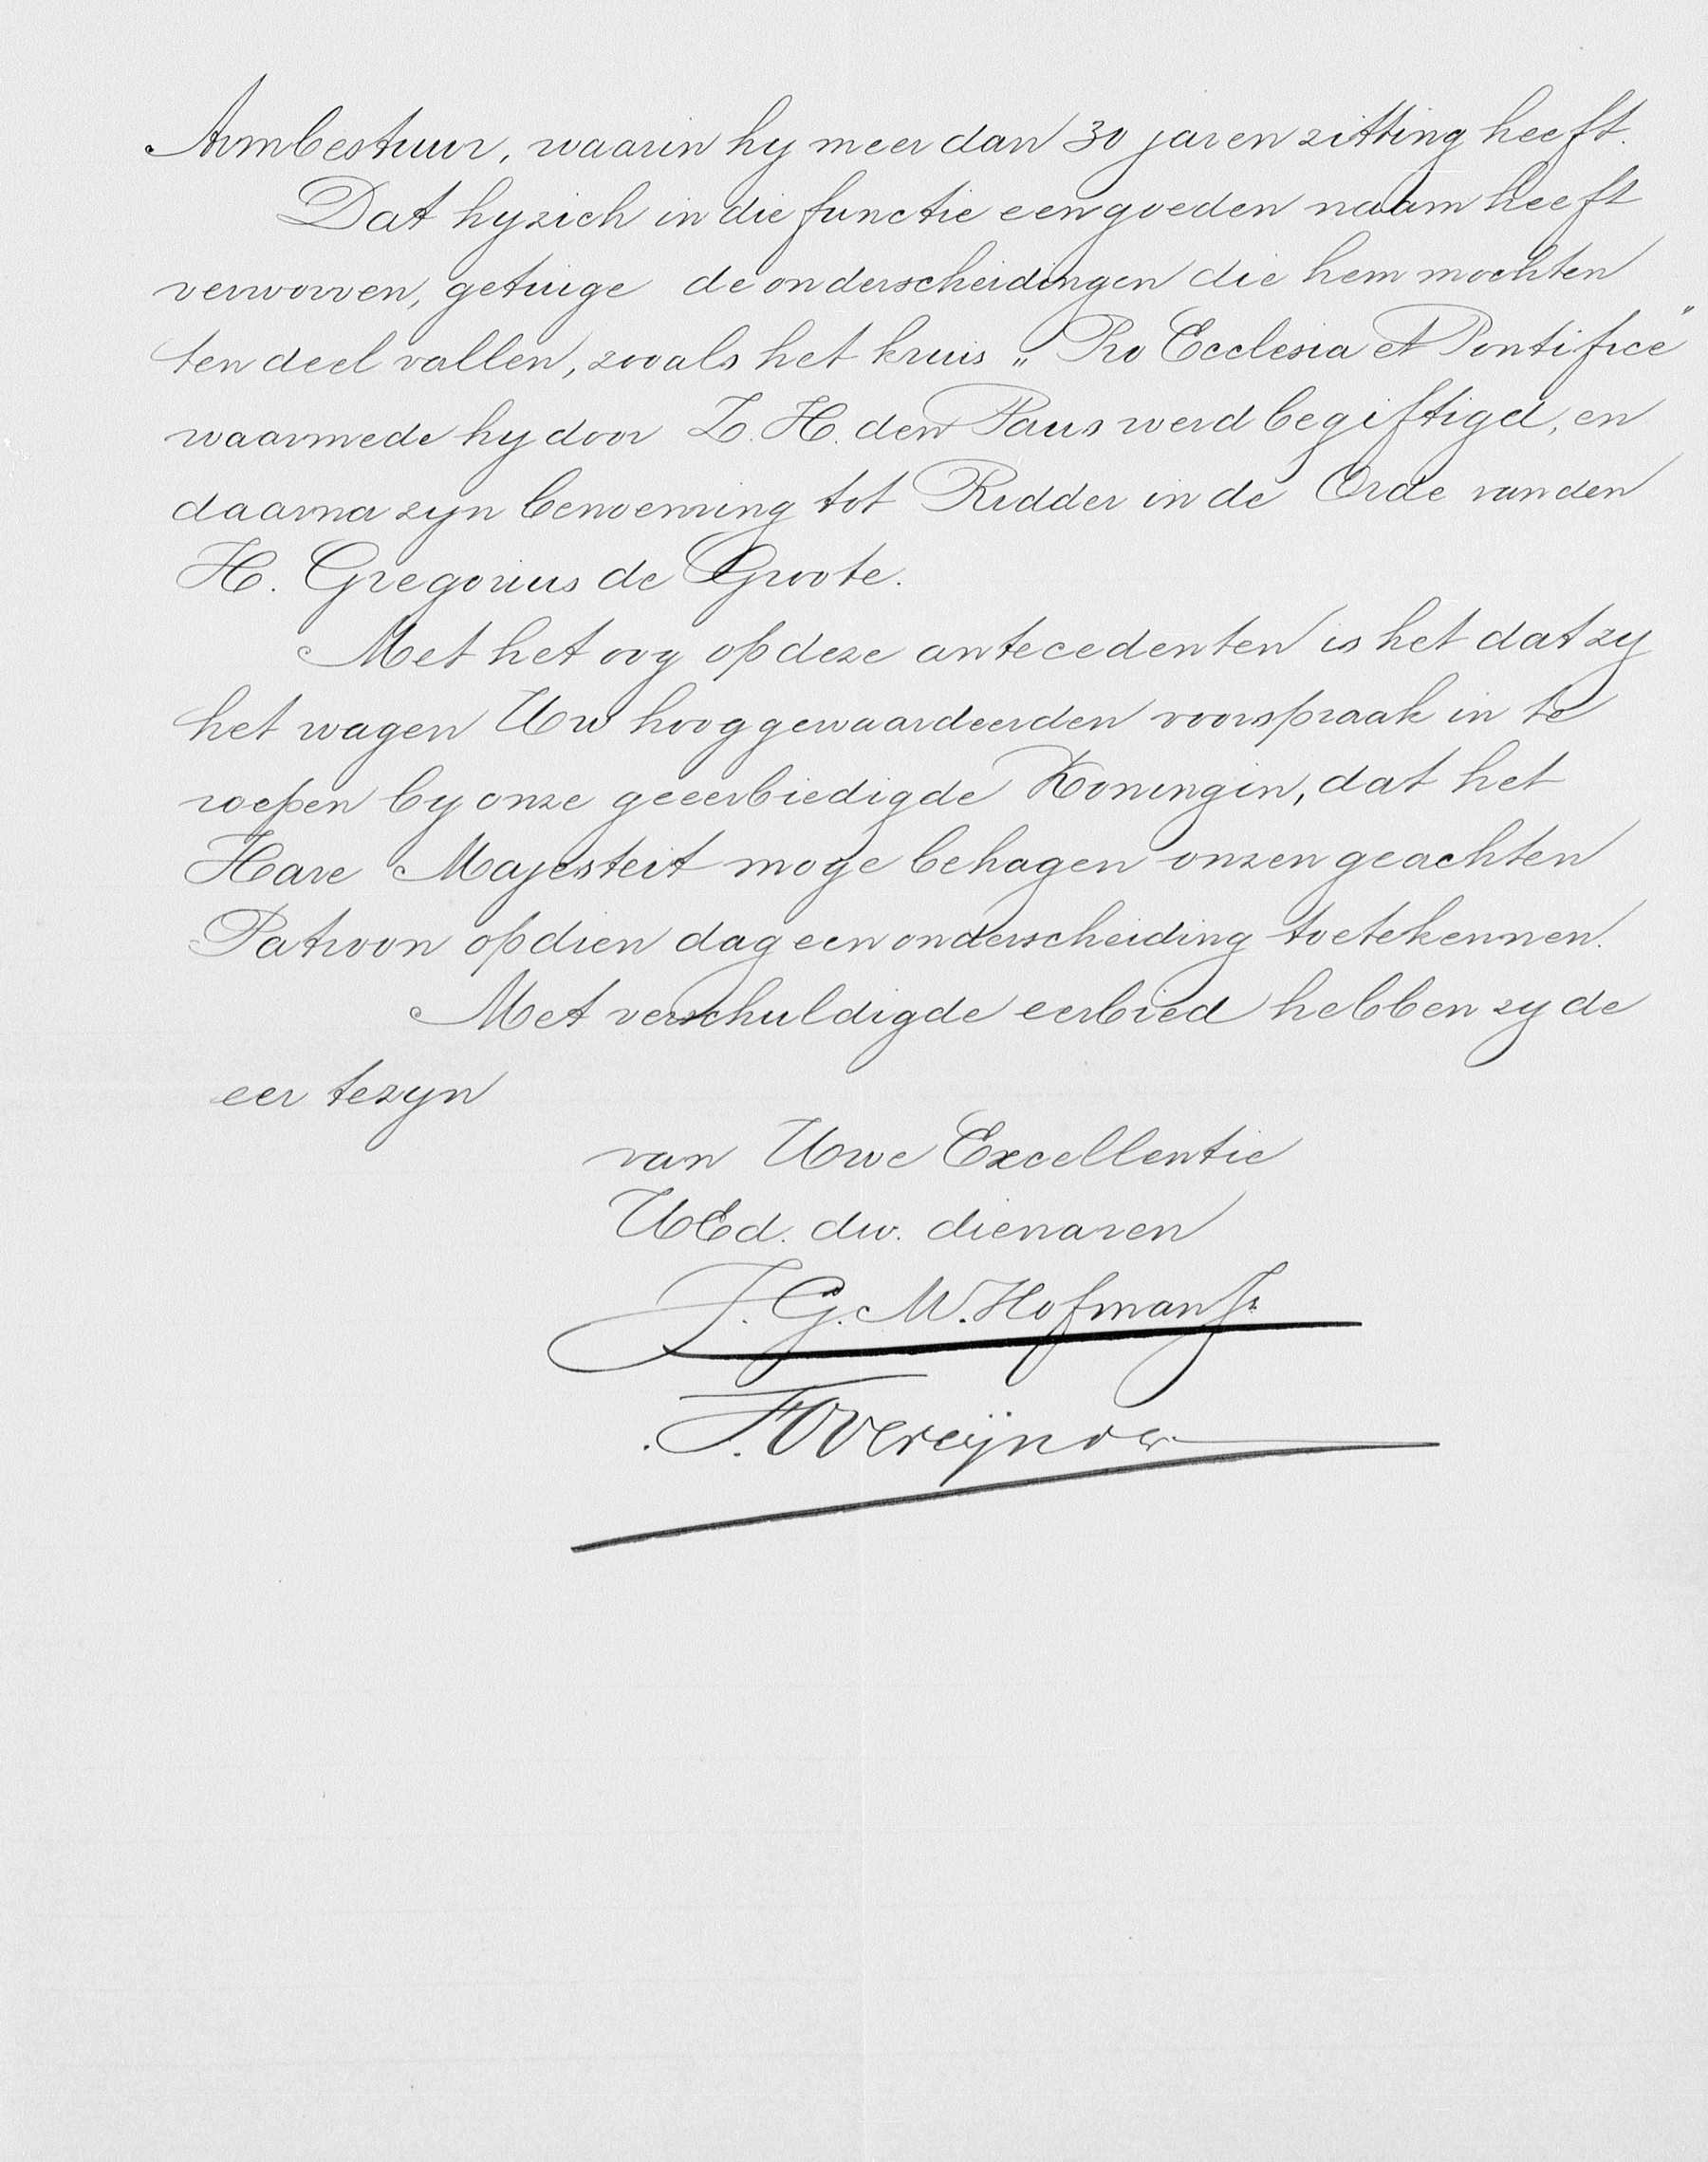 Armbestuur, waarin hy meer dan 30 jaren zitting heeft.
Dat hy zich in die functie een goeden naam heeft
verworven, getuige de onderscheidingen die hem mochten
ten deel vallen, zooals het kruis „Pro Ecclesia et Pontifice"
waarmede hy door Z. H. den Paus werd begiftigd, en
daarna zyn benoeming tot Ridder in de Orde van den
H. Gregorius de Groote.
Met het oog op deze antecedenten is het dat zy
het wagen Uw hooggewaardeerden voorspraak in te
roepen by onze geeerbiedigde Koningin, dat het
Hare Majesteit moge behagen onzen geachten
Patroon op dien dag een onderscheiding toetekennen.
Met verschuldigde eerbied hebben zy de
eer te zyn
van Uwe Excellentie
UEd. dw. dienaren
J. G. M. Hofman Jr.